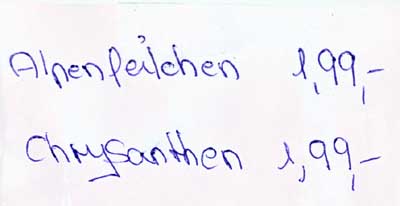 Alpenfeilchen 1,99,-
Chrysanthen 1,99,-